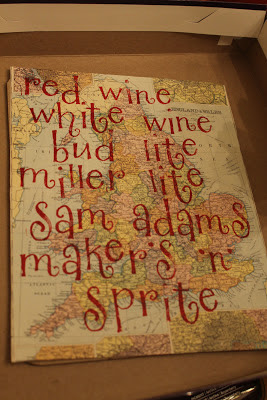 red wine
ENGLAND & WALES
white wine
bud lite
miller lite
sam adams
maker's 'n'
sprite